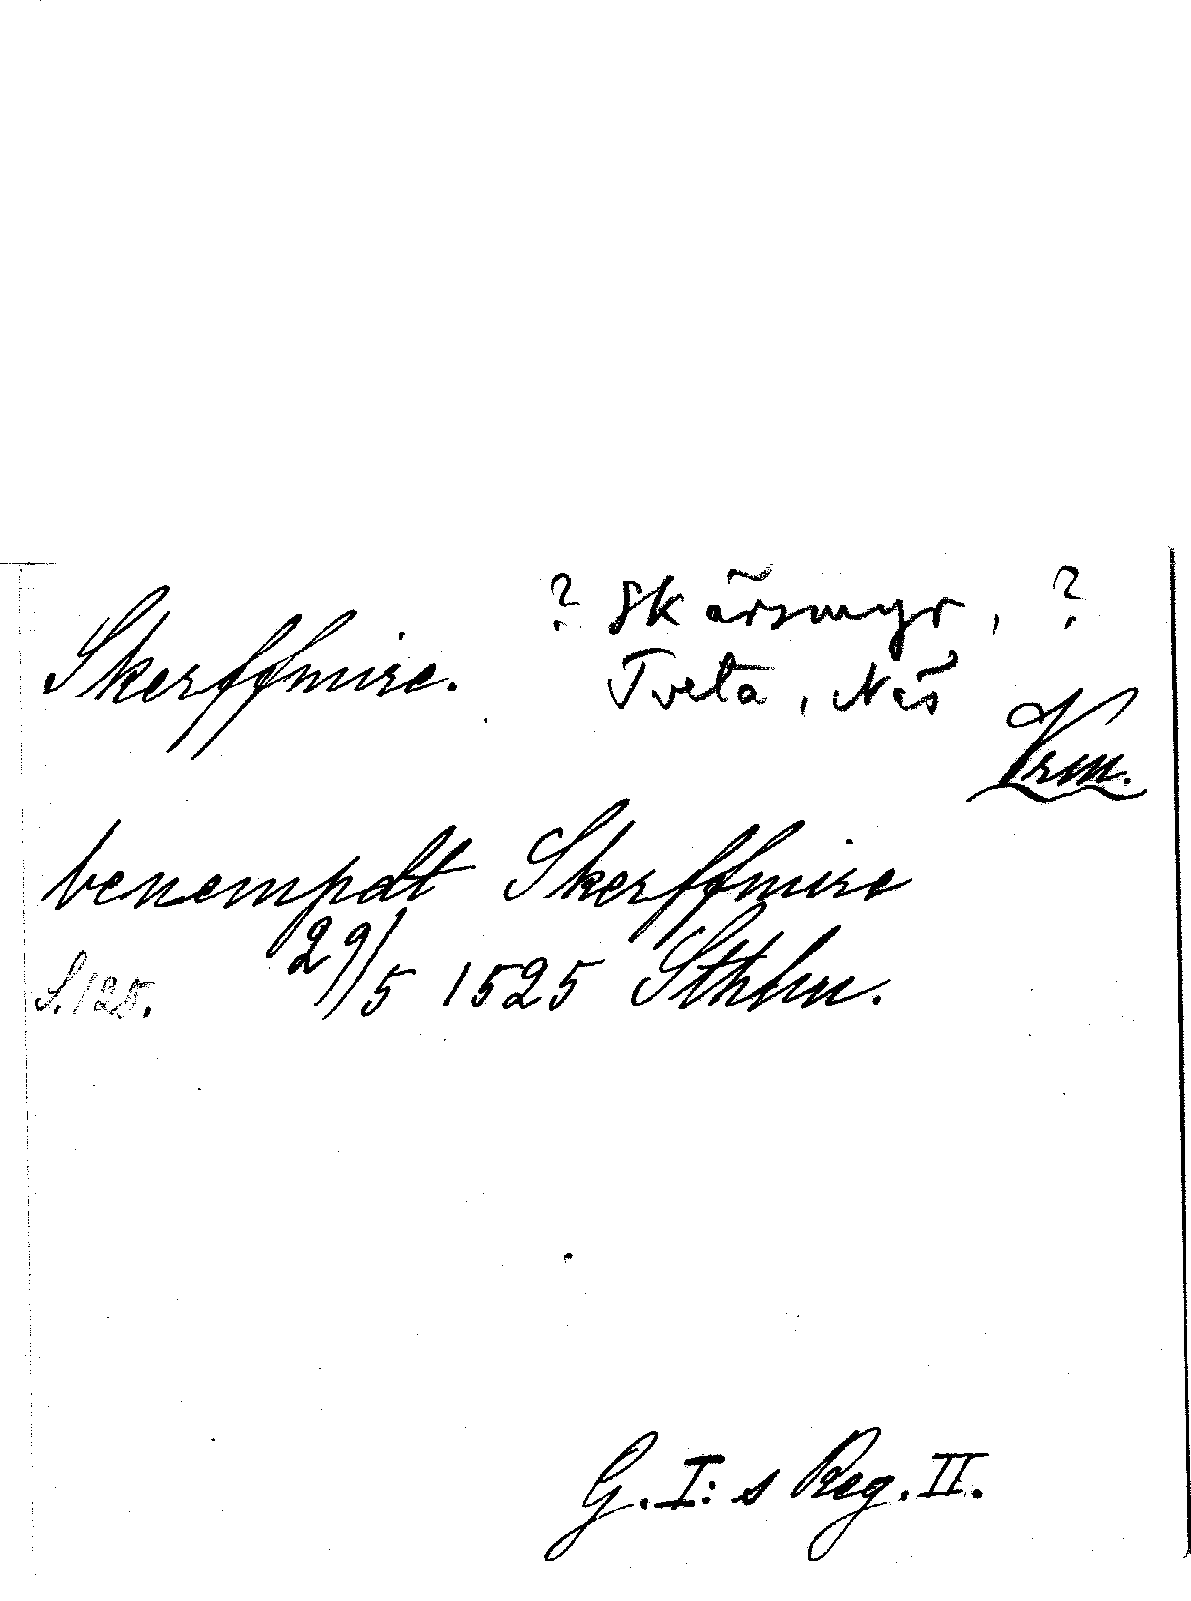 ? Skärsmyr, ?
Skerffmire.
Tveta, Näs
Vrm.
benempdt Skerffmire
S. 125. 29/5 1525 Sthlm.
G. I:s Reg. II.